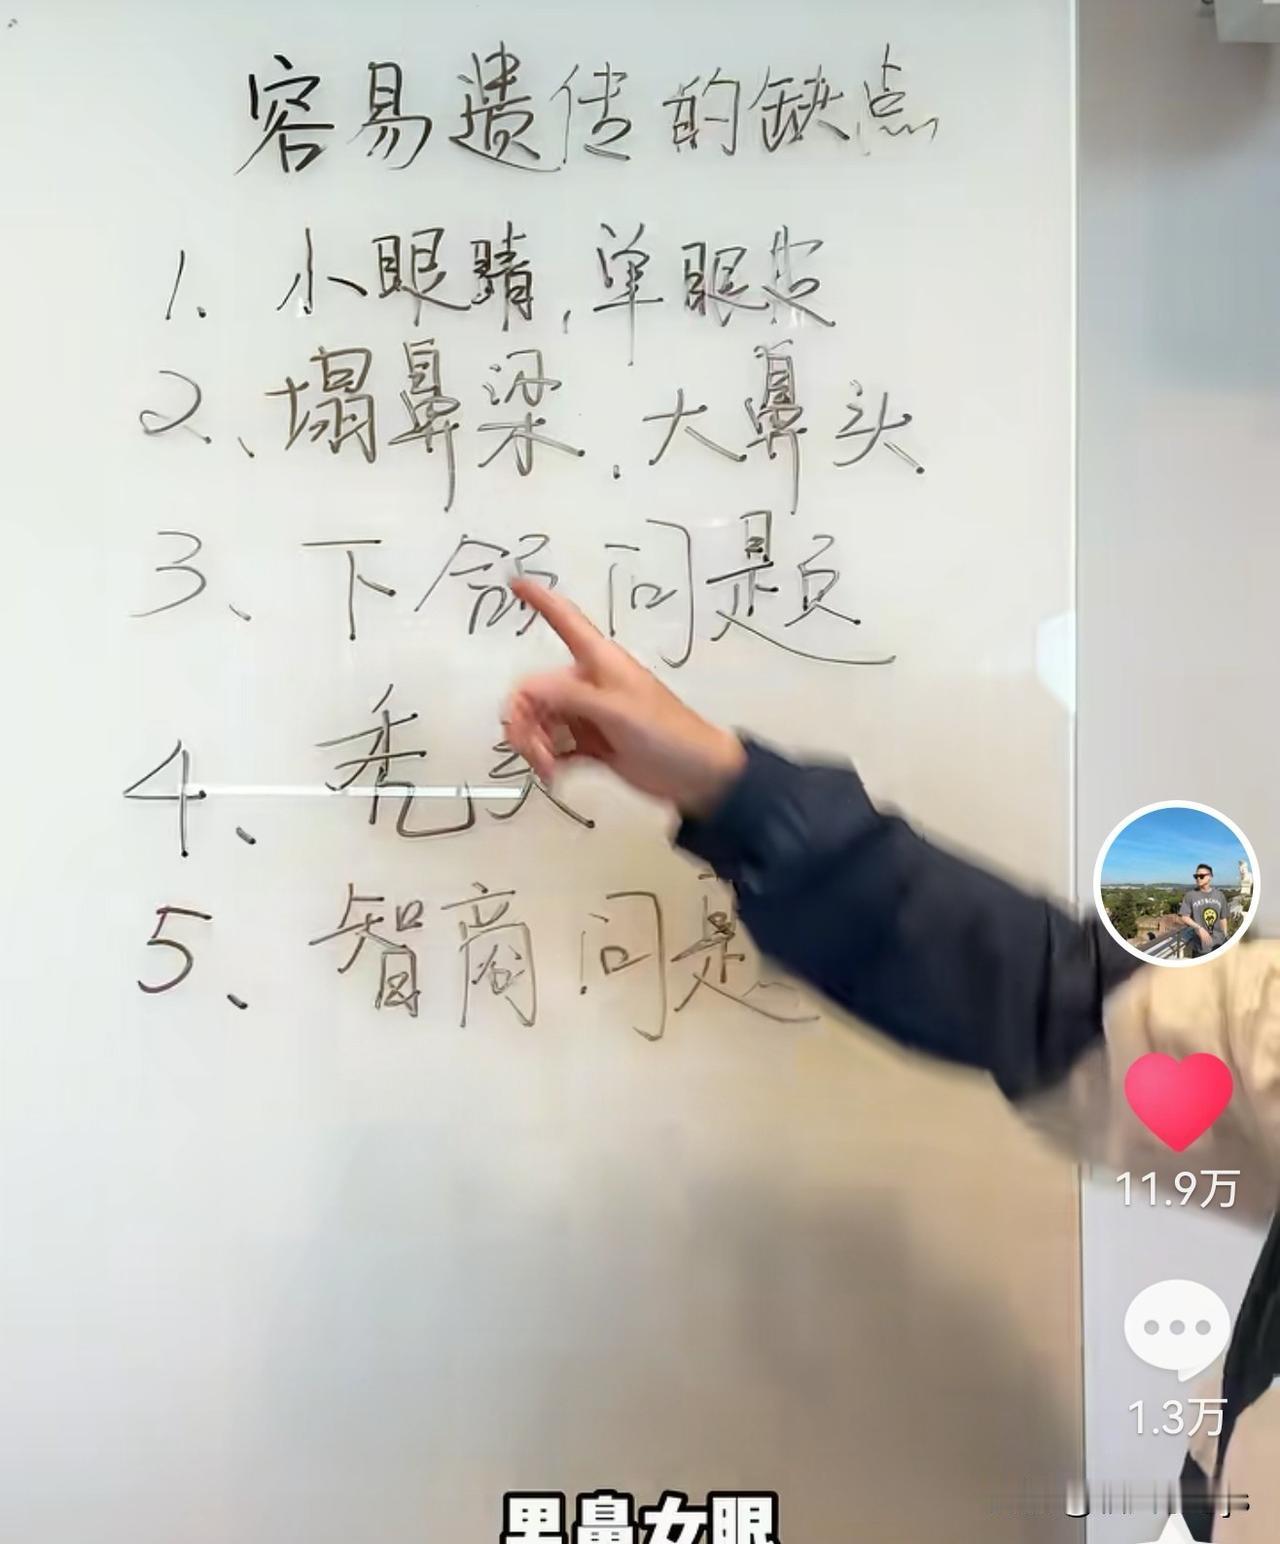 容易遗传的缺点
1、小眼睛,单眼皮
2、塌鼻梁.大鼻头
3、下颌问题
4、秃头
5、智商问题
11.9万
1.3万
男鼻女眼